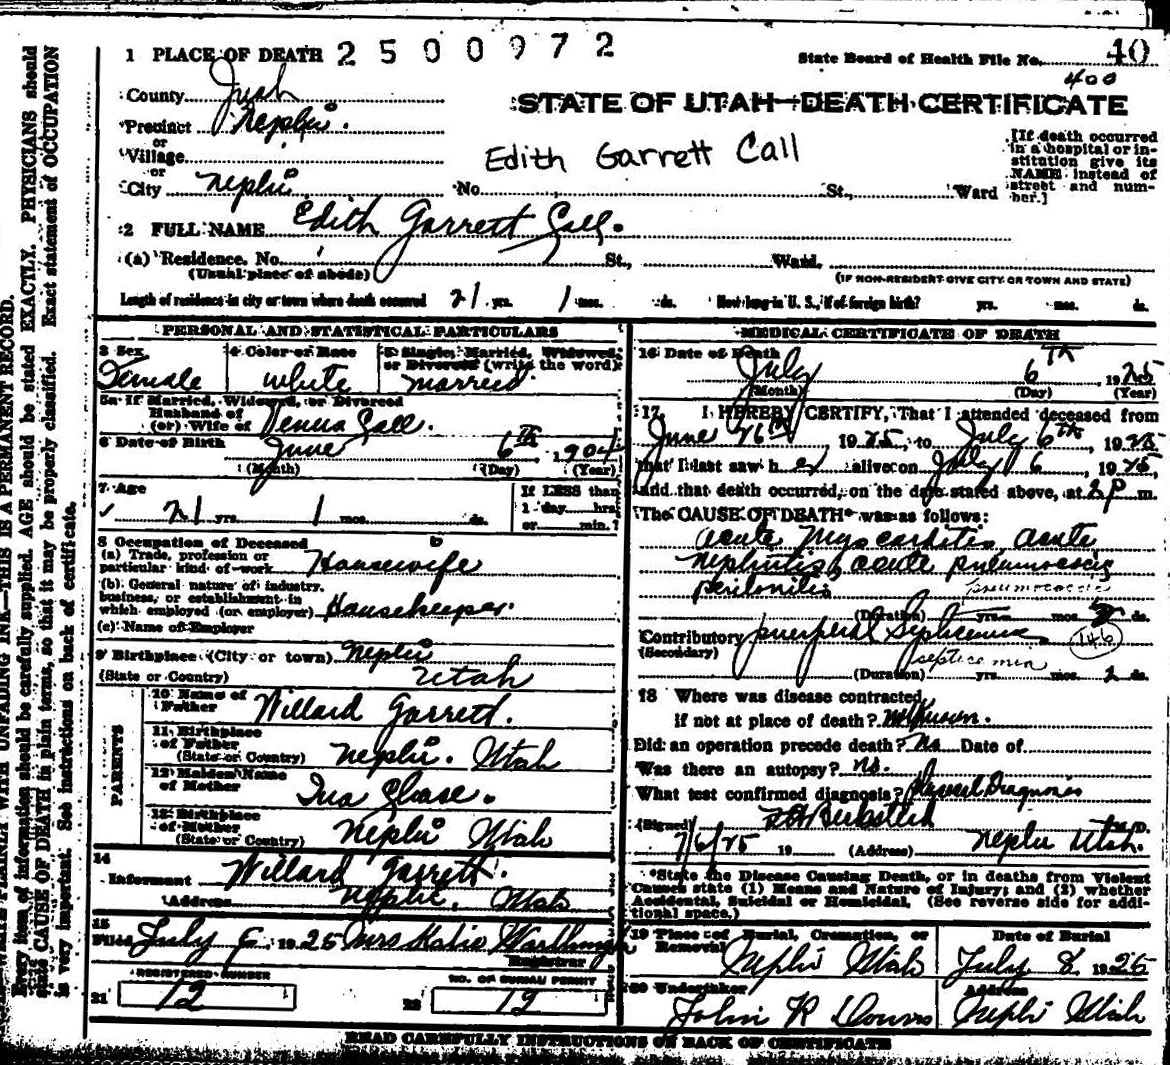 1 PLACE OF DEATH 2500972
State Board of Health File No. 40
400
County Juab
STATE OF UTAH—DEATH CERTIFICATE
Precinct Nephi.
or
Village
or
City Nephi No. St., Ward
Edith Garrett Call
[If death occurred
in a hospital or in-
stitution give its
NAME instead of
street and num-
ber.]
2 FULL NAME Edith Garrett Call.
(a) Residence. No. St., Ward.
(Usual place of abode) (IF NON-RESIDENT GIVE CITY OR TOWN AND STATE)
Length of residence in city or town where death occurred 21 yrs. 1 mos. ds. How long in U. S., if of foreign birth? yrs. mos. ds.
PERSONAL AND STATISTICAL PARTICULARS
3 Sex 4 Color or Race 5 Single, Married, Widowed,
or Divorced (write the word)
Female white married
5a If Married, Widowed, or Divorced
Husband of
(or) Wife of Call.
6 Date of Birth June 6th 1904
(Month) (Day) (Year)
7 Age If LESS than
21 yrs. 1 mos. ds. 1 day hrs.
or min.?
8 Occupation of Deceased
(a) Trade, profession or
particular kind of work Housewife
(b) General nature of industry,
business, or establishment in
which employed (or employer) Housekeeper.
(c) Name of Employer
9 Birthplace (City or town) Nephi
(State or Country) Utah
PARENTS
10 Name of
Father Willard Garrett.
11 Birthplace
of Father
(State or Country) Nephi. Utah
12 Maiden Name
of Mother Ina Chase.
13 Birthplace
of Mother
(State or Country) Nephi Utah
14
Informant Willard Garrett.
Address Nephi. Utah
15
Filed July 1925 Mrs
Registrar
REGISTERED NUMBER NO. OF BURIAL PERMIT
21 12 22 12
MEDICAL CERTIFICATE OF DEATH
16 Date of Death
July 6th, 1925
(Month) (Day) (Year)
17. I HEREBY CERTIFY, That I attended deceased from
June 26th, 1925, to July 6th, 1925
that I last saw her alive on July 6, 1925,
and that death occurred, on the date stated above, at 2 P m.
The CAUSE OF DEATH* was as follows:
acute Myocarditis acute
nephritis, acute pneumococcic
peritonitis pneumococcic
(Duration) yrs. mos. ds.
Contributory puerperal Septicemia 146
(Secondary) septicemia
(Duration) yrs. mos. 2 ds.
18 Where was disease contracted,
if not at place of death? unknown.
Did an operation precede death? No Date of
Was there an autopsy? no.
What test confirmed diagnosis? Physical Diagnosis
(Signed) M.D.
7/6/25 19 (Address) Nephi Utah.
*State the Disease Causing Death, or in deaths from Violent
Causes state (1) Means and Nature of Injury; and (2) whether
Accidental, Suicidal or Homicidal. (See reverse side for addi-
tional space.)
19 Place of Burial, Cremation, or
Removal Date of Burial
Nephi Utah July 8 1925
20 Undertaker Address
John R Nephi Utah
READ CAREFULLY INSTRUCTIONS ON BACK OF CERTIFICATE
WITH UNFADING INK—THIS IS A PERMANENT RECORD.
Every item of information should be carefully supplied. AGE should be stated EXACTLY. PHYSICIANS should
state CAUSE OF DEATH in plain terms, so that it may be properly classified. Exact statement of OCCUPATION
is very important. See instructions on back of certificate.